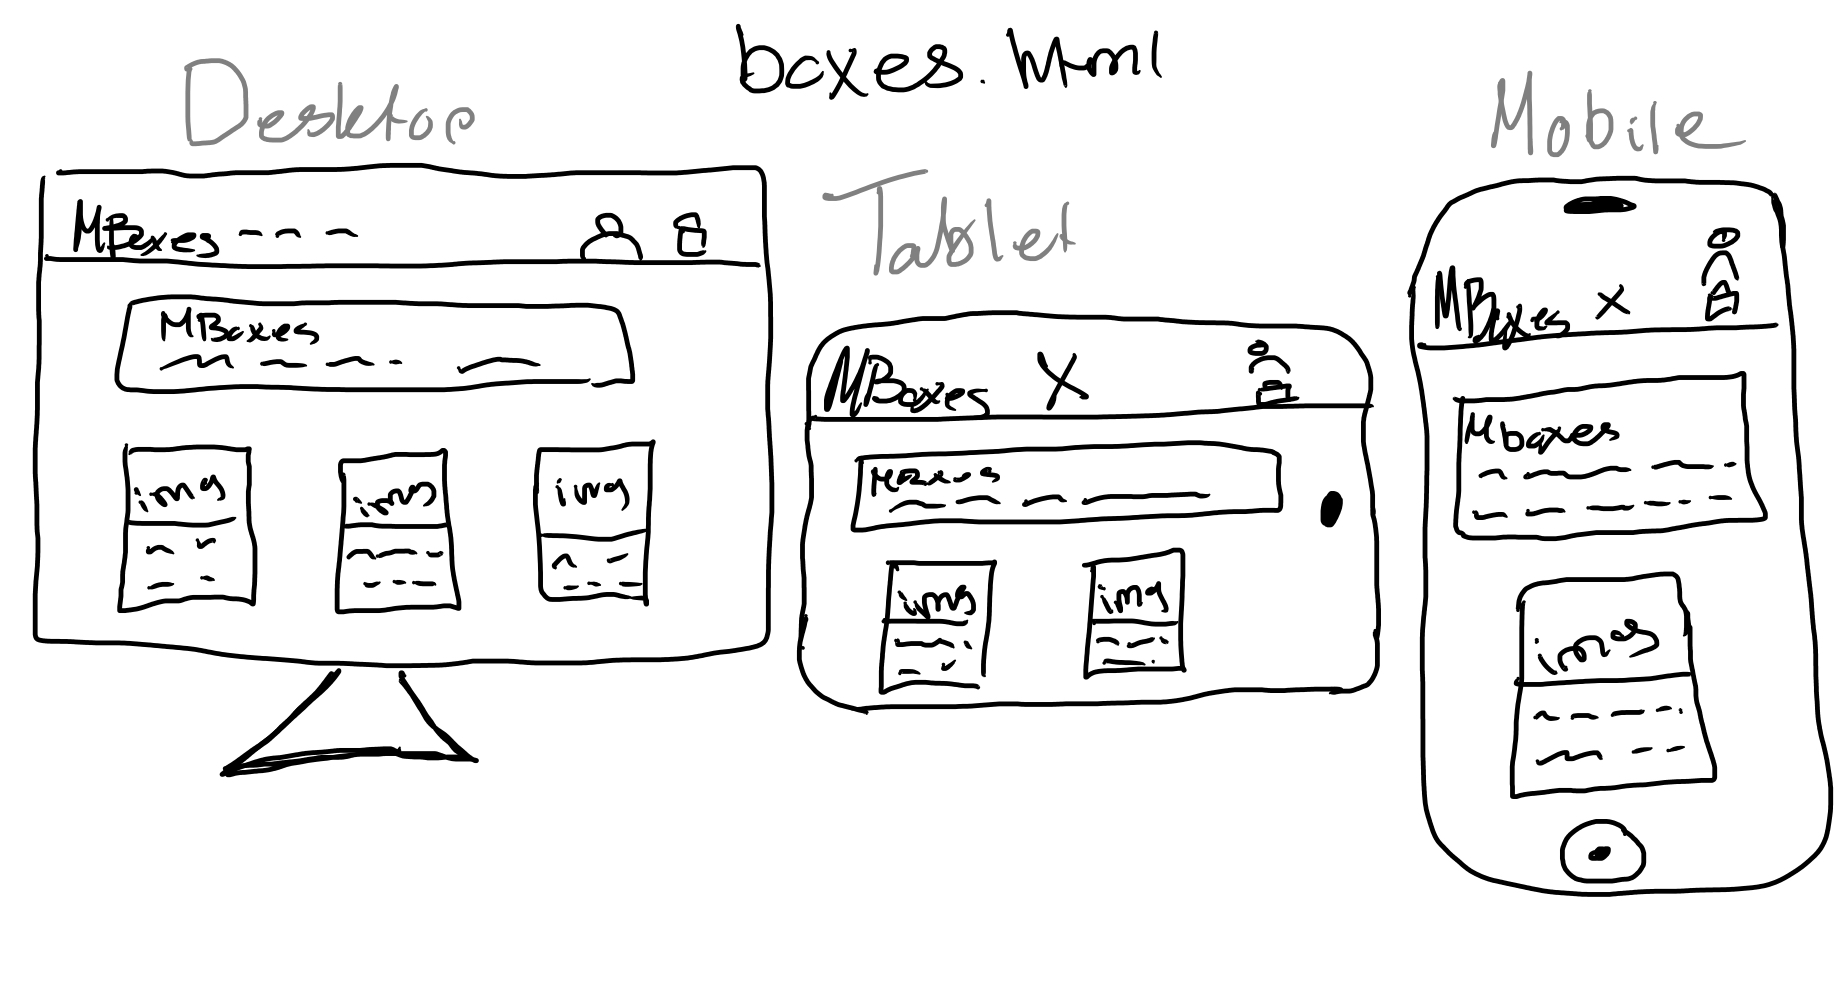 boxes.html
Desktop
MBoxes
MBoxes
img
img
img
Tablet
MBoxes X
MBoxes
img
img
Mobile
MBoxes X
Mboxes
img